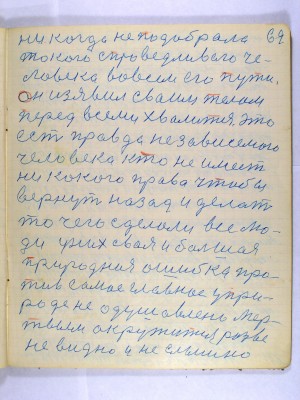 69
никогда неподобрала
токого споведливаго че-
ловека вовсем его пути.
он изявил своим телом
перед всеми хвалится это
есть правда независемого
человека кто не имеет
ни кокого права чтобы
вернут назад и делат
то чего сделали все лю-
ди у них своя и болшая
природная ошибка про-
тив самое главное у при-
роде не одушавлено мер-
твым окружится разве
не видно и не слышно